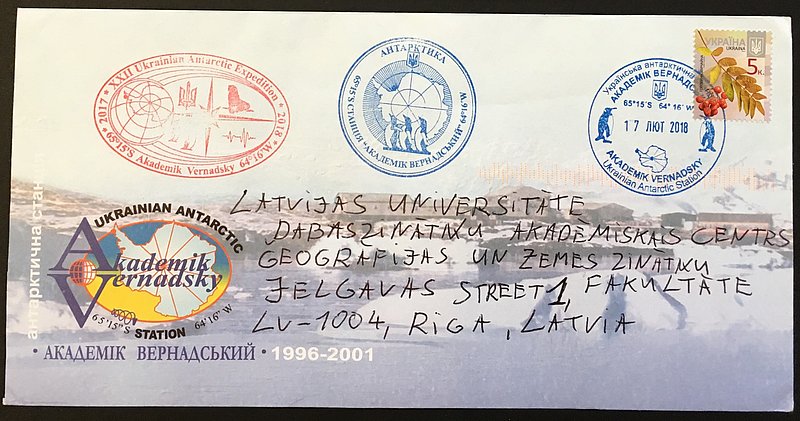 2017 * XXII Ukrainian Antarctic Expedition * 2018
65°15'S Akademik Vernadsky 64°16'W
АНТАРКТИКА
65°15'S СТАНЦІЯ "АКАДЕМІК ВЕРНАДСЬКИЙ" 64°16'W
Українська антарктична
АКАДЕМІК ВЕРНАДС
65°15'S 64°16'W
17 ЛЮТ 2018
AKADEMIK VERNADSKY
Ukrainian Antarctic Station
УКРАЇНА
UKRAINE
5к.
LATVIJAS UNIVERSITĀTE
DABASZINĀTŅU AKADĒMISKAIS CENTRS
GEOGRĀFIJAS UN ZEMES ZINĀTŅU
JELGAVAS STREET 1, FAKULTĀTE
LV-1004, RĪGA, LATVIA
антарктична стан
UKRAINIAN ANTARCTIC
Akademik
Vernadsky
65°15"S STATION 64°16"W
· АКАДЕМІК ВЕРНАДСЬКИЙ · 1996-2001